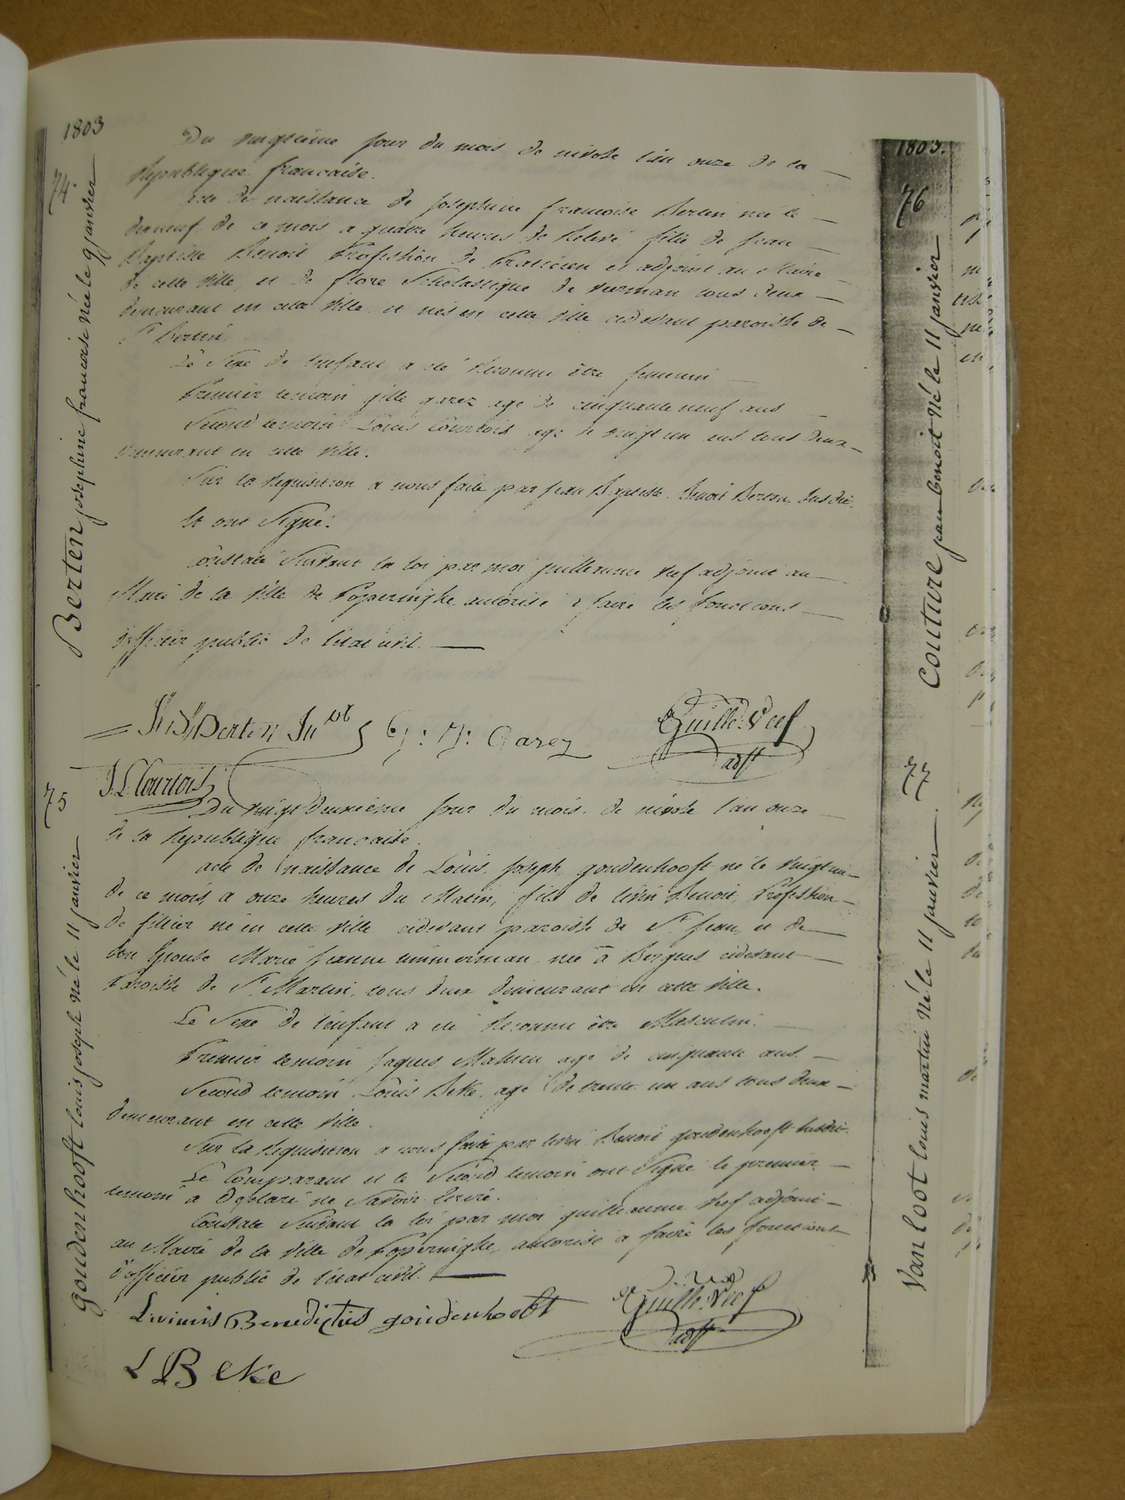 1803
74.
Berten josephine francoise née le 9 janvier
Du vingtième jour du mois de nivose l'an onze de la
Republique francaise.
acte de naissance de Josephine francoise Berten née le
dixneuf de ce mois a quatre heures de Relevé fille de jean
Baptiste Benoit Profession de Praticien et adjoint au Maire
de cette ville, et de flore Scholastique de verman tous deux
demeurant en cette ville et nés en cette ville cidevant paroisse de
St Bertin.
Le Sexe de l'enfant a été Reconnu être feminin
Premier temoin gille garez agé de cinquante neuf ans
Second temoin Louis Courtois agé de vingt un ans tous deux
demeurant en cette ville.
Sur la Requisition a nous faite par jean Baptiste Benoit Berten Susdit
Et ont Signé.
Constaté Suivant la loi par moi guillaume Vuf adjoint au
Maire de la Ville de Poperinghe autorisé a faire les fonctions
d'officier public de l'état civil.
J: B: Berten
G: F: Garez
Guille: Vuf
adjt
J. L Courtois
75
goudenhooft louis joseph né le 11 janvier
Du vingt deuxième jour du mois de nivose l'an onze
de la Republique francaise.
acte de naissance de Louis Joseph goudenhooft né le vingt un
de ce mois, a onze heures du Matin, fils de livin Benoit, Profession
de filtier né en cette ville cidevant paroisse de St jean, et de
son Epouse Marie jeanne timmerman née à Bergues cidevant
Paroisse de St Martin, tous deux demeurant en cette ville.
Le Sexe de l'enfant a été Reconnu être Masculin.
Premier temoin Jaques Mahieu agé de cinquante ans
Second temoin Louis Beke, agé de trente un ans tous deux
demeurant en cette Ville.
Sur la Requisition a nous faite par livin Benoit goudenhooft Susdit.
Le Comparant et le Second temoin ont Signé le premier
temoin a Declaré ne Savoir Ecrire.
Constaté Suivant la loi par moi guillaume Vuf adjoint
au Maire de la Ville de Poperinghe, autorisé a faire les fonctions
d'officier public de l'état civil.
Livinis Benedictus goudenhooft
Guille: Vuf
adjt
L Beke
1803.
76
Couture jean benoit né le 11 janvier
77
Van loot louis martin né le 11 janvier.